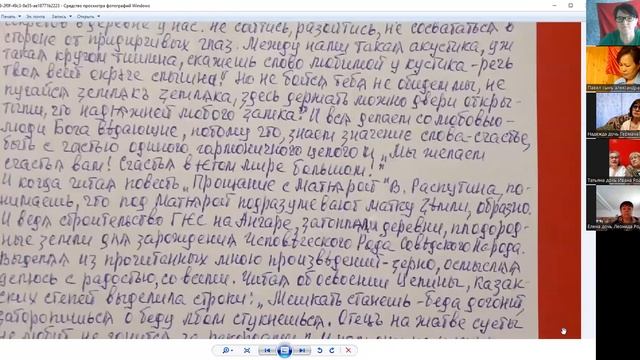 0-2f0f-49c3-8e35-ae1877162223 - Средство просмотра фотографий Windows
Печать Эл. почта Запись Открыть
секретов в деревне у нас. Не сойтись, разойтись, не сосвататься в
стороне от придирчивых глаз. Между нами такая акустика, уж
такая кругом тишина, скажешь слово любимой у кустика - речь
твоя всей округе слышна! Но не бойся тебя не обидем мы, не
пугайся земляк земляка, здесь держать можно двери откры-
тыми, что надёжней любого замка." И вся делаем со любовью-
люди Бога ведающие, потому что, знаем значение слова - счастье,
быть с частью одного гармоничного целого и "Мы желаем
счастья вам! Счастья в этом мире большом!"
И когда читая повесть "Прощание с Матёрой" В. Распутина, по-
нимаешь, что под Матёрой подразумевают матку земли, образно.
И ведя строительство ГЭС на Ангаре, затопляли деревни, плодород-
ные земли для зарождения Исповеческого Рода Советского народа.
Выделяя из прочитанных мною произведений - зерно, осмысляя
делюсь с радостью, со всеми. Читая об освоении Целины, Казах-
ских степей выделила строки: "Мешкать станешь - беда догонит,
заторопишься о беду лбом стукнешься. Отець на жатве суеты
не любит, не гонится за
Павел сынъ александра
Надежда дочь Германа
Татьяна дочь Ивана Род
Елена дочь Леонида Род